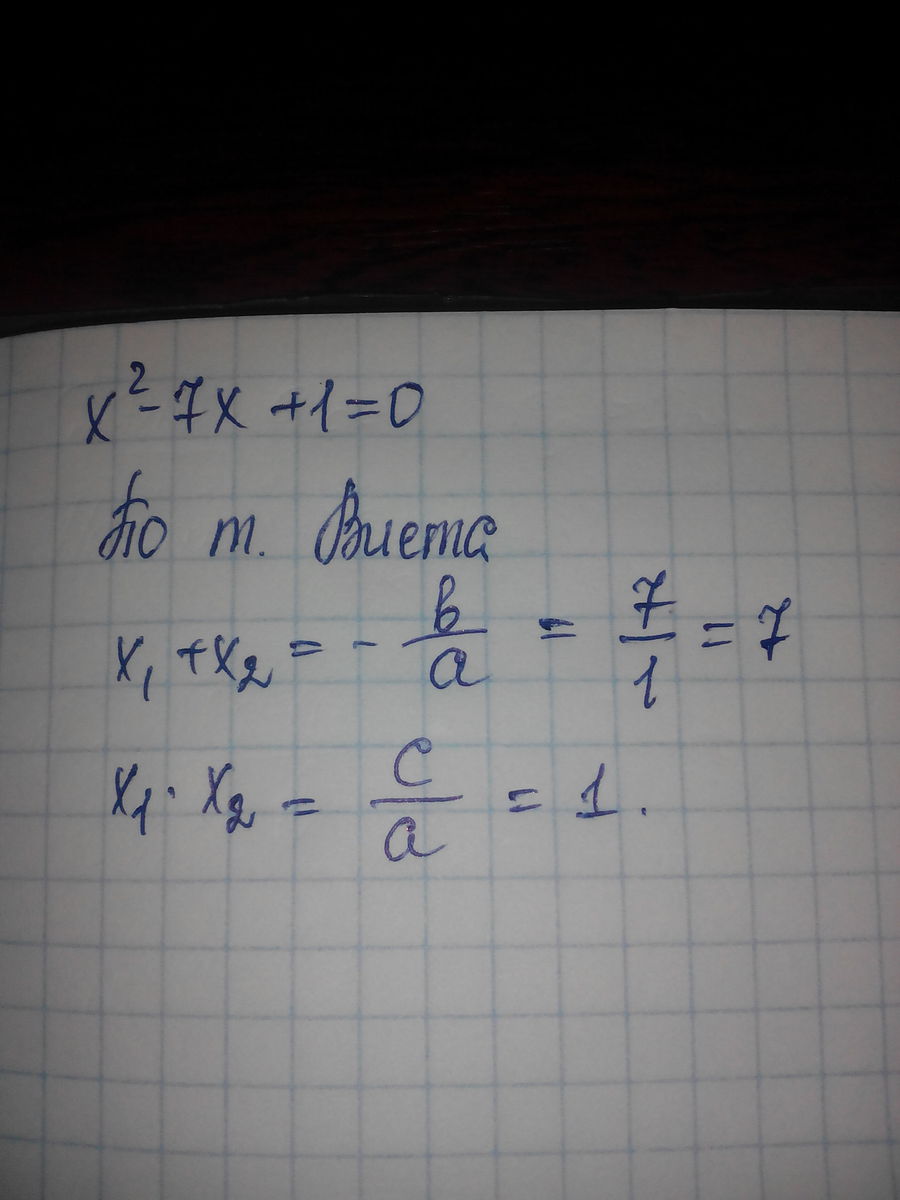 x² - 7x + 1 = 0
По т. Виета
x₁ + x₂ = - в/a = 7/1 = 7
x₁ · x₂ = c/a = 1.